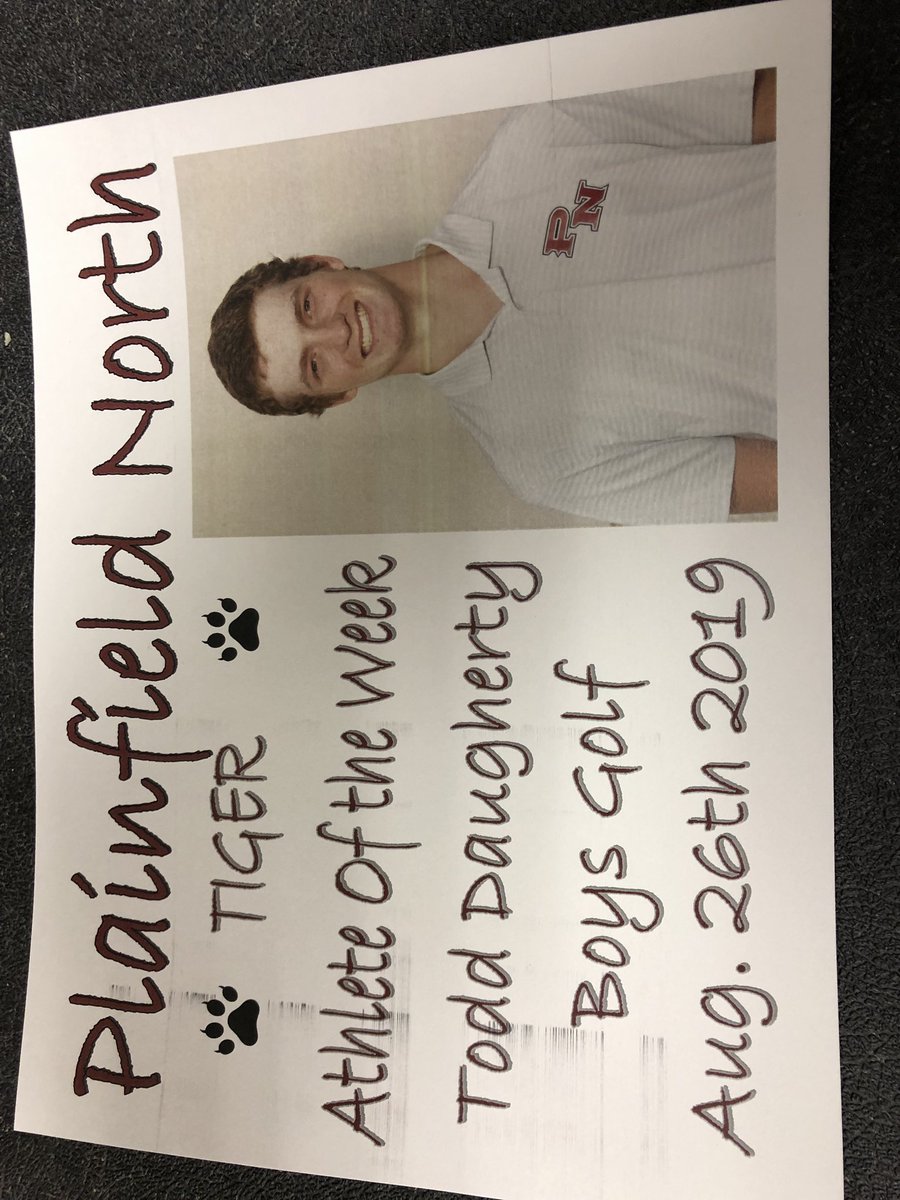 Plainfield North
TIGER
Athlete Of the Week
Todd Daugherty
Boys Golf
Aug. 26th 2019
PN